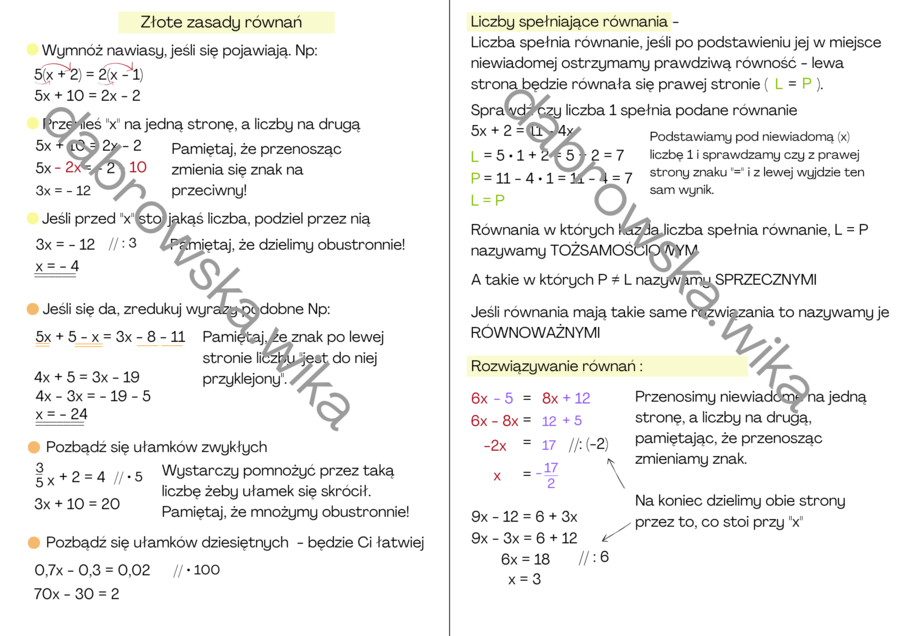 Złote zasady równań
Wymnóż nawiasy, jeśli się pojawiają. Np:
5(x + 2) = 2(x - 1)
5x + 10 = 2x - 2
Przenieś "x" na jedną stronę, a liczby na drugą
5x + 10 = 2x - 2
5x - 2x = - 2 - 10
3x = - 12
Pamiętaj, że przenosząc
zmienia się znak na
przeciwny!
Jeśli przed "x" sto jakąś liczba, podziel przez nią
3x = - 12 // : 3 Pamiętaj, że dzielimy obustronnie!
x = - 4
Jeśli się da, zredukuj wyrazy podobne Np:
5x + 5 - x = 3x - 8 - 11
4x + 5 = 3x - 19
4x - 3x = - 19 - 5
x = - 24
Pamiętaj, że znak po lewej
stronie liczby "jest do niej
przyklejony".
Pozbądź się ułamków zwykłych
3/5 x + 2 = 4 // • 5
3x + 10 = 20
Wystarczy pomnożyć przez taką
liczbę żeby ułamek się skrócił.
Pamiętaj, że mnożymy obustronnie!
Pozbądź się ułamków dziesiętnych - będzie Ci łatwiej
0,7x - 0,3 = 0,02 // • 100
70x - 30 = 2
Liczby spełniające równania -
Liczba spełnia równanie, jeśli po podstawieniu jej w miejsce
niewiadomej ostrzymamy prawdziwą równość - lewa
strona będzie równała się prawej stronie ( L = P ).
Sprawdź czy liczba 1 spełnia podane równanie
5x + 2 = 11 - 4x
L = 5 • 1 + 2 = 5 + 2 = 7
P = 11 - 4 • 1 = 11 - 4 = 7
L = P
Podstawiamy pod niewiadomą (x)
liczbę 1 i sprawdzamy czy z prawej
strony znaku "=" i z lewej wyjdzie ten
sam wynik.
Równania w których każda liczba spełnia równanie, L = P
nazywamy TOŻSAMOŚCIOWYM
A takie w których P ≠ L nazywamy SPRZECZNYMI
Jeśli równania mają takie same rozwiązania to nazywamy je
RÓWNOWAŻNYMI
Rozwiązywanie równań :
6x - 5 = 8x + 12
6x - 8x = 12 + 5
-2x = 17 //: (-2)
x = - 17/2
Przenosimy niewiadome na jedną
stronę, a liczby na drugą,
pamiętając, że przenosząc
zmieniamy znak.
Na koniec dzielimy obie strony
przez to, co stoi przy "x"
9x - 12 = 6 + 3x
9x - 3x = 6 + 12
6x = 18 // : 6
x = 3
dąbrowska.wika
dąbrowska.wika